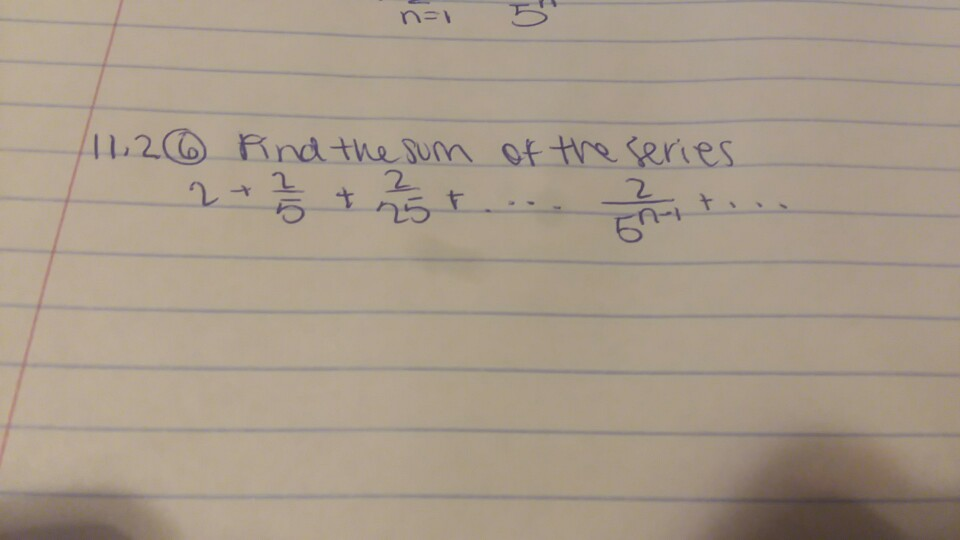 n=1 5^n
11.2 ⑥ Find the sum of the series
2 + 2/5 + 2/25 + .... 2/5^(n-1) + ...